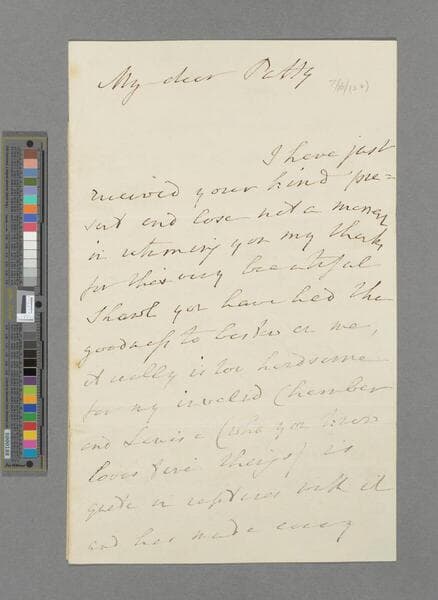 My dear Patty
I have just
received your kind pre=
sent and lose not a moment
in returning you my thanks
for this very beautiful
Shawl you have had the
goodness to bestow on me,
it really is too handsome
for my invalid Chamber
and Louisa (who you know
loves fine things) is
quite in raptures with it
and has made away